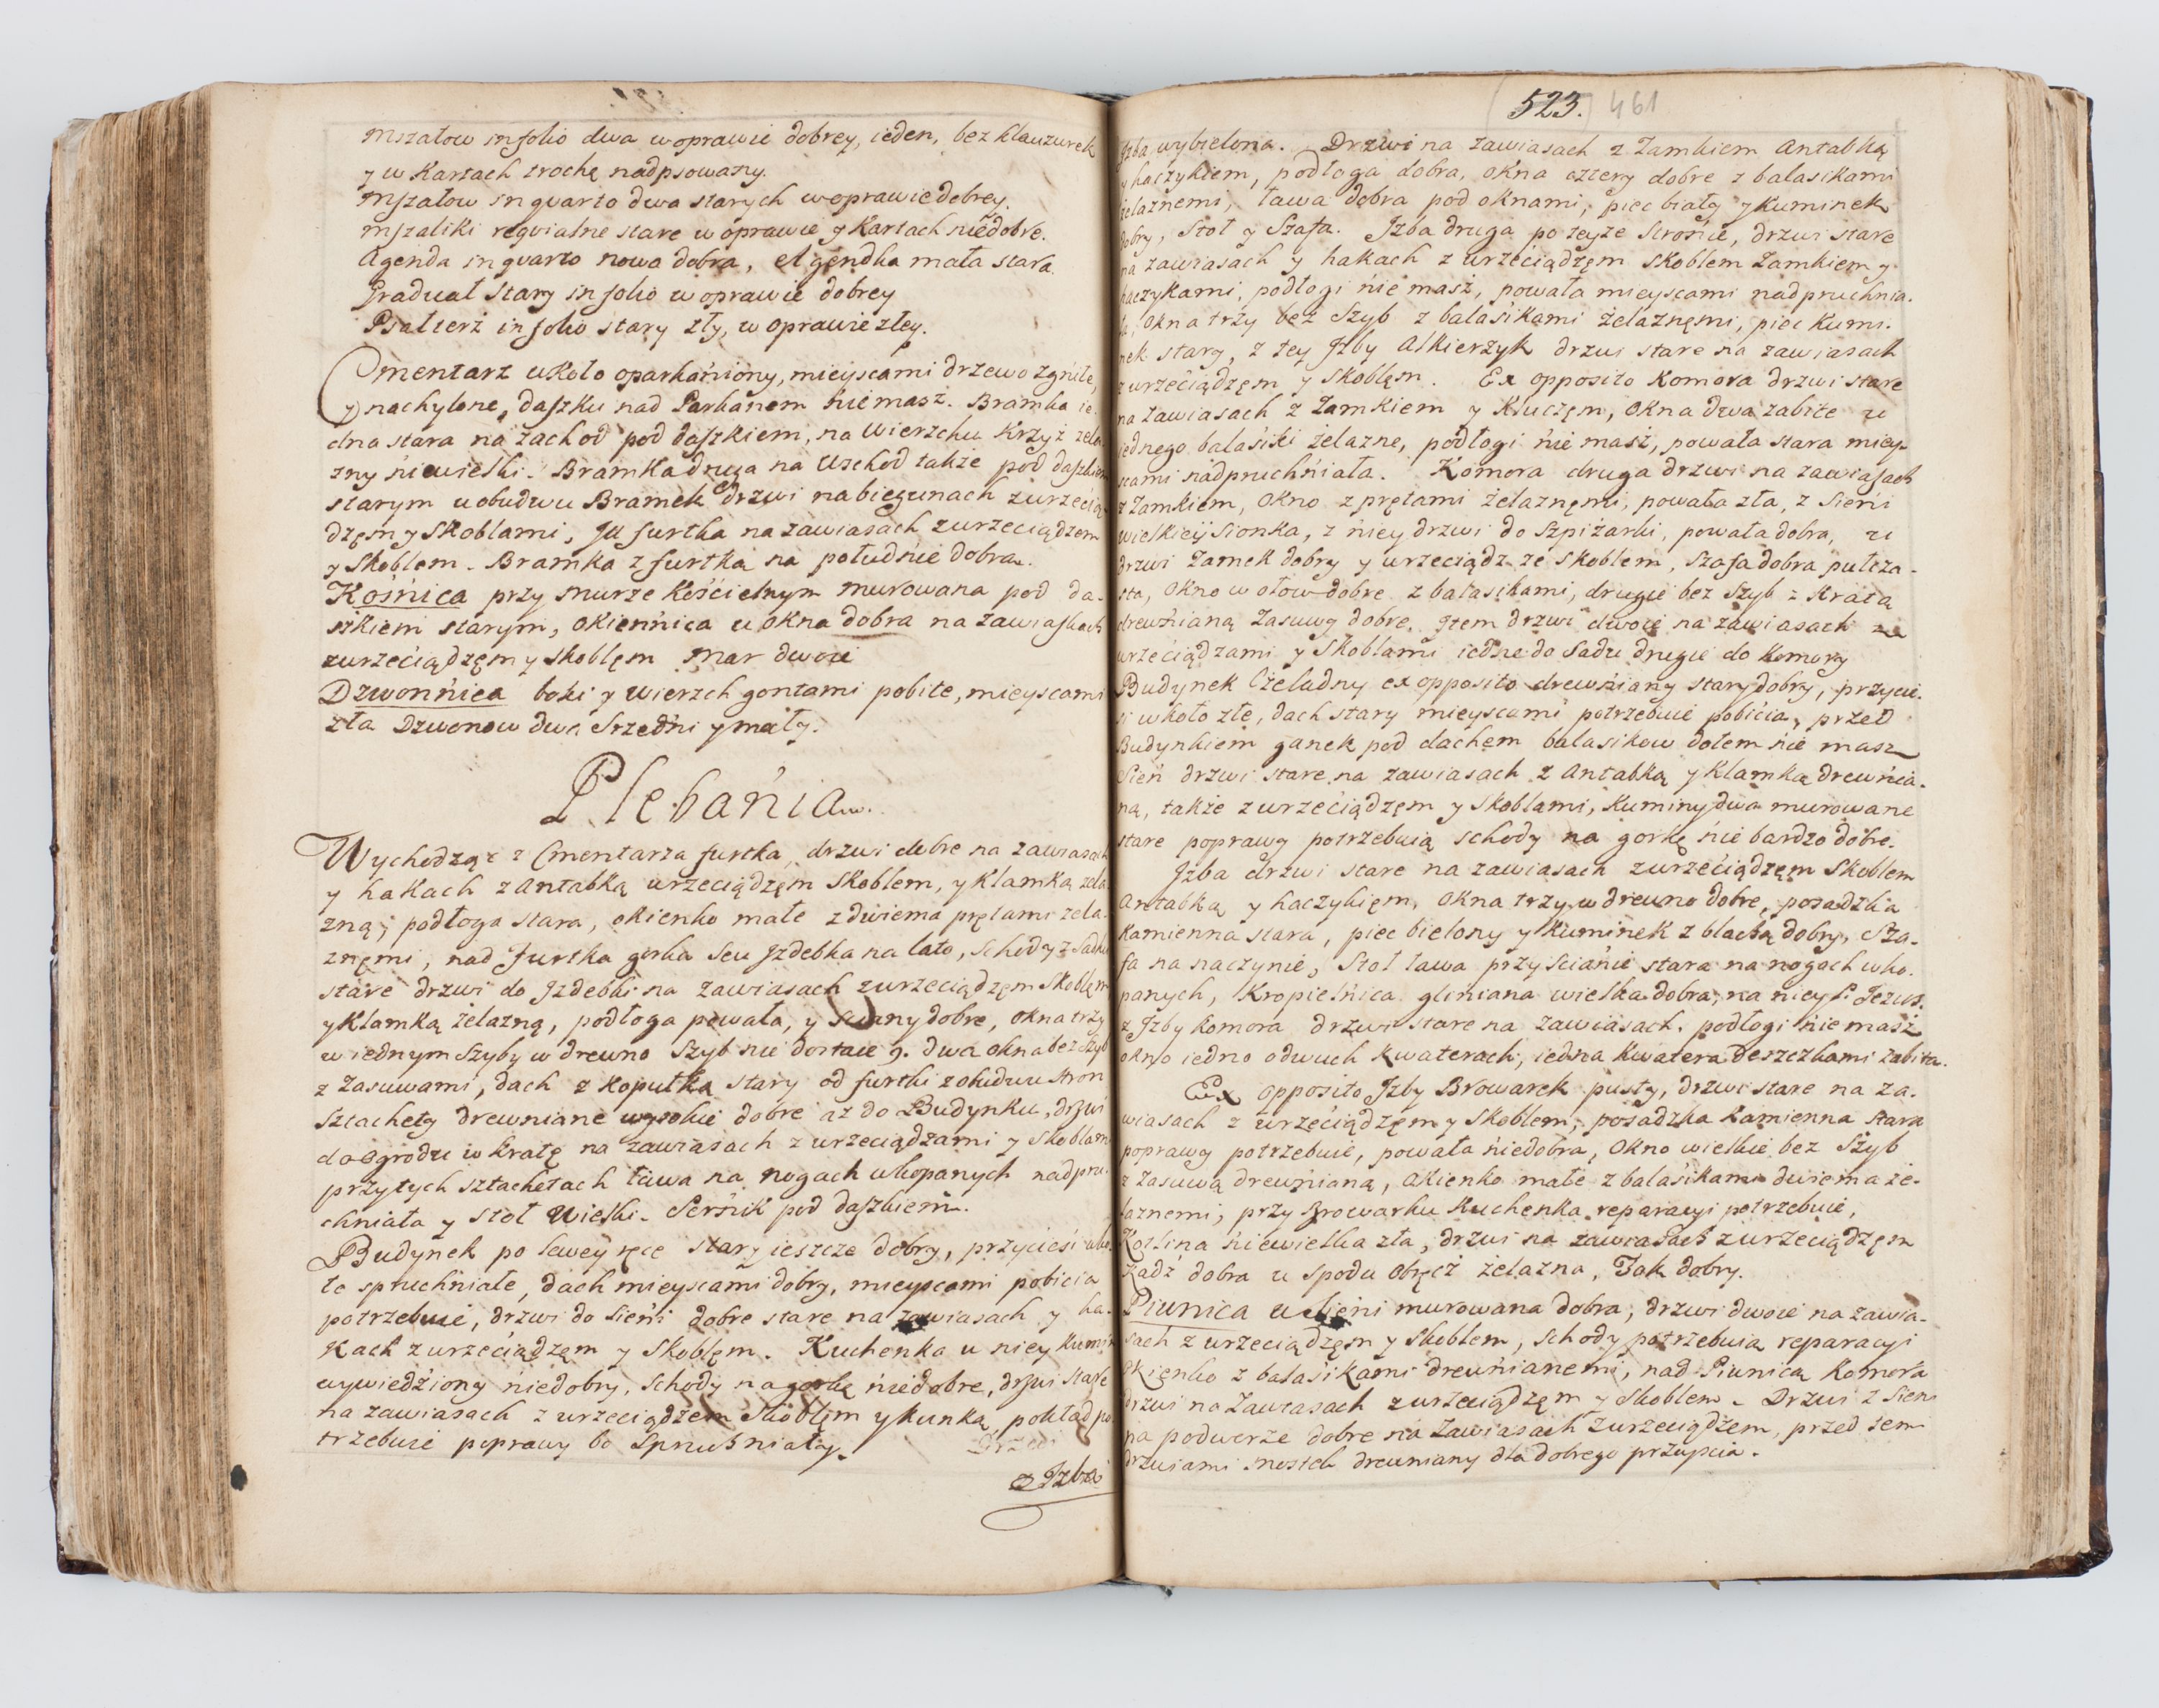 Mszałow in folio dwa w oprawie dobrey, ieden, bez klauzurek
y w Kartach trochę nadpsowany.
Mszałow in quarto dwa starych w oprawie dobrey.
Mszaliki requialne stare w oprawie y Kartach niedobre.
Agenda in quarto nowa dobra, Agendka mała stara.
Graduał stary in folio w oprawie dobrey
Psałterż in folio stary zły, w oprawie złey.
Cmentarz wkoło oparkaniony, mieyscami drzewo zgniłe,
y nachylone, daszku nad Parkanem nie masz. Bramka ie-
dna stara na zachod pod daszkiem, na wierzchu Krzyż żela-
zny niewielki. Bramka druga na Wschod także pod daszkiem
starym u obudwu Bramek drzwi na biegunach z wrzecią-
dzęm y Skoblami, furtka na zawiasach z wrzeciądzem
y Skoblem. Bramka z furtką na południe dobra.
Kośnica przy murze Kościelnym murowana pod da-
szkiem starym, okiennica u okna dobra na zawiaskach
z wrzeciądzęm y skoblęm Mar dwoie
Dzwonnica boki y wierzch gontami pobite, mieyscami
zła Dzwonow dwa Srzedni y mały.
Plebania.
Wychodząc z Cmentarza furtka, drzwi dobre na zawiasach
y hakach z Antabką wrzeciądzęm Skoblem, y Klamką żela-
zną, podłoga stara, okienko małe z dwiema prętami żela-
znęmi, nad Furtką gorka seu Izdebka na lato, schody z Sadku
stare drzwi do Izdebki na zawiasach z wrzeciądzęm Skoblęm
y Klamką żelazną, podłoga powała, y Sciany dobre, okna trzy
w iednym Szyby w drewno Szyb nie dostaie 9. dwa okna bez Szyb
z Zasuwami, dach z Kopułką stary od furtki z obudwu stron
Sztachety drewniane wysokie dobre aż do Budynku, drzwi
do ogrodu w kratę na zawiasach z wrzeciądzami y Skoblami
przy tych sztachetach ława na nogach wkopanych nadpru-
chniała y stoł Wielki. Sernik pod daszkiem.
Budynek po lewey ręce stary ieszcze dobry, przyciesi wko-
ło spruchniałe, dach mieyscami dobry, mieyscami pobicia
potrzebuie, drzwi do Sieni dobre stare na zawiasach y ha-
kach z wrzeciądzęm y Skoblęm. Kuchenka u niey Kumin
wywiedziony niedobry, schody na gorkę niedobre, drzwi stare
na zawiasach z wrzeciądzem Skoblęm y Kunką, pokład po-
trzebuie poprawy bo Spruchniały.
Izba
523. 461
Izba wybielona. Drzwi na zawiasach z Zamkiem Antabką
y haczykiem, podłoga dobra, okna cztery dobre z balasikami
żelaznemi, ława dobra pod oknami, piec biały y Kuminek
dobry, Stoł y Szafa. Izba druga po teyże Stronie, drzwi stare
na zawiasach y hakach z wrzeciądzęm Skoblem Zamkiem y
haczykami, podłogi nie masz, powała mieyscami nadpruchnia-
ła, okna trży bez Szyb z balasikami żelaznęmi, piec Kumi-
nek stary, z tey Izby Alkierzyk drzwi stare na zawiasach
z wrzeciądzęm y skoblęm. Ex opposito Komora drzwi stare
na zawiasach z Zamkiem y Kluczęm, okna dwa zabite u
iednego balasiki żelazne, podłogi nie masz, powała stara miey-
scami nadpruchniała. Komora druga drzwi na zawiasach
z Zamkiem, okno z prętami żelaznęmi, powała zła, z Sieni
wielkiey Sionka, z niey drzwi do Szpiżarki, powała dobra, u
drzwi Zamek dobry y wrzeciądz ze Skoblem, Szafa dobra pułcza-
sta, okno w ołow dobre z balasikami, drugie bez Szyb z Kratą
drewnianą Zasuwy dobre. Item drzwi dwoie na zawiasach z
wrzeciądzami y Skoblami iedne do Sadu drugie do Komory
Budynek Czeladny ex opposito drewniany stary dobry, przycie-
si wkoło złe, dach stary mieyscami potrzebuie pobicia, przed
Budynkiem ganek pod dachem balasikow dołem nie masz
Sień drzwi stare na zawiasach z Antabką y Klamką drewnia-
ną, także z wrzeciądzęm y Skoblami, Kuminy dwa murowane
stare poprawy potrzebuią schody na gorkę nie bardzo dobre.
Izba drzwi stare na zawiasach z wrzeciądzęm Skoblem
Antabką y haczykięm, okna trzy w drewno dobre, posadzka
Kamienna stara, piec bielony y Kuminek z blachą dobry, Sza-
fa na naczynie, Stoł ława przy scianie stara na nogach wko-
panych, Kropielnica gliniana wielka dobra, na niey P. Jezus.
z Izby Komora drzwi stare na zawiasach, podłogi nie masz
okno iedno o dwuch kwaterach, iedna kwatera deszczkami zabita.
Ex opposito Izby Browarek pusty, drzwi stare na za-
wiasach z wrzeciądzęm y Skoblem, posadzka Kamienna stara
poprawy potrzebuie, powała niedobra, okno wielkie bez Szyb
z Zasuwą drewnianą, okienko małe z balasikami dwiema że-
laznemi, przy Browarku Kuchenka reparacyi potrzebuie,
Kozlina niewielka zła, drzwi na zawiasach z wrzeciądzęm
Kadź dobra u spodu obręcż żelazna, Tak dobry.
Piwnica w Sieni murowana dobra, drzwi dwoie na zawia-
sach z wrzeciądzęm y Skoblem, schody potrzebuią reparacyi
okienko z balasikami drewnianemi, nad Piwnicą Komora
drzwi na zawiasach z wrzeciądzęm y Skoblem. Drzwi z Sieni
na podworze dobre na zawiasach z wrzeciądzem, przed temi
drzwiami mostek drewniany dla dobrego przeyscia.